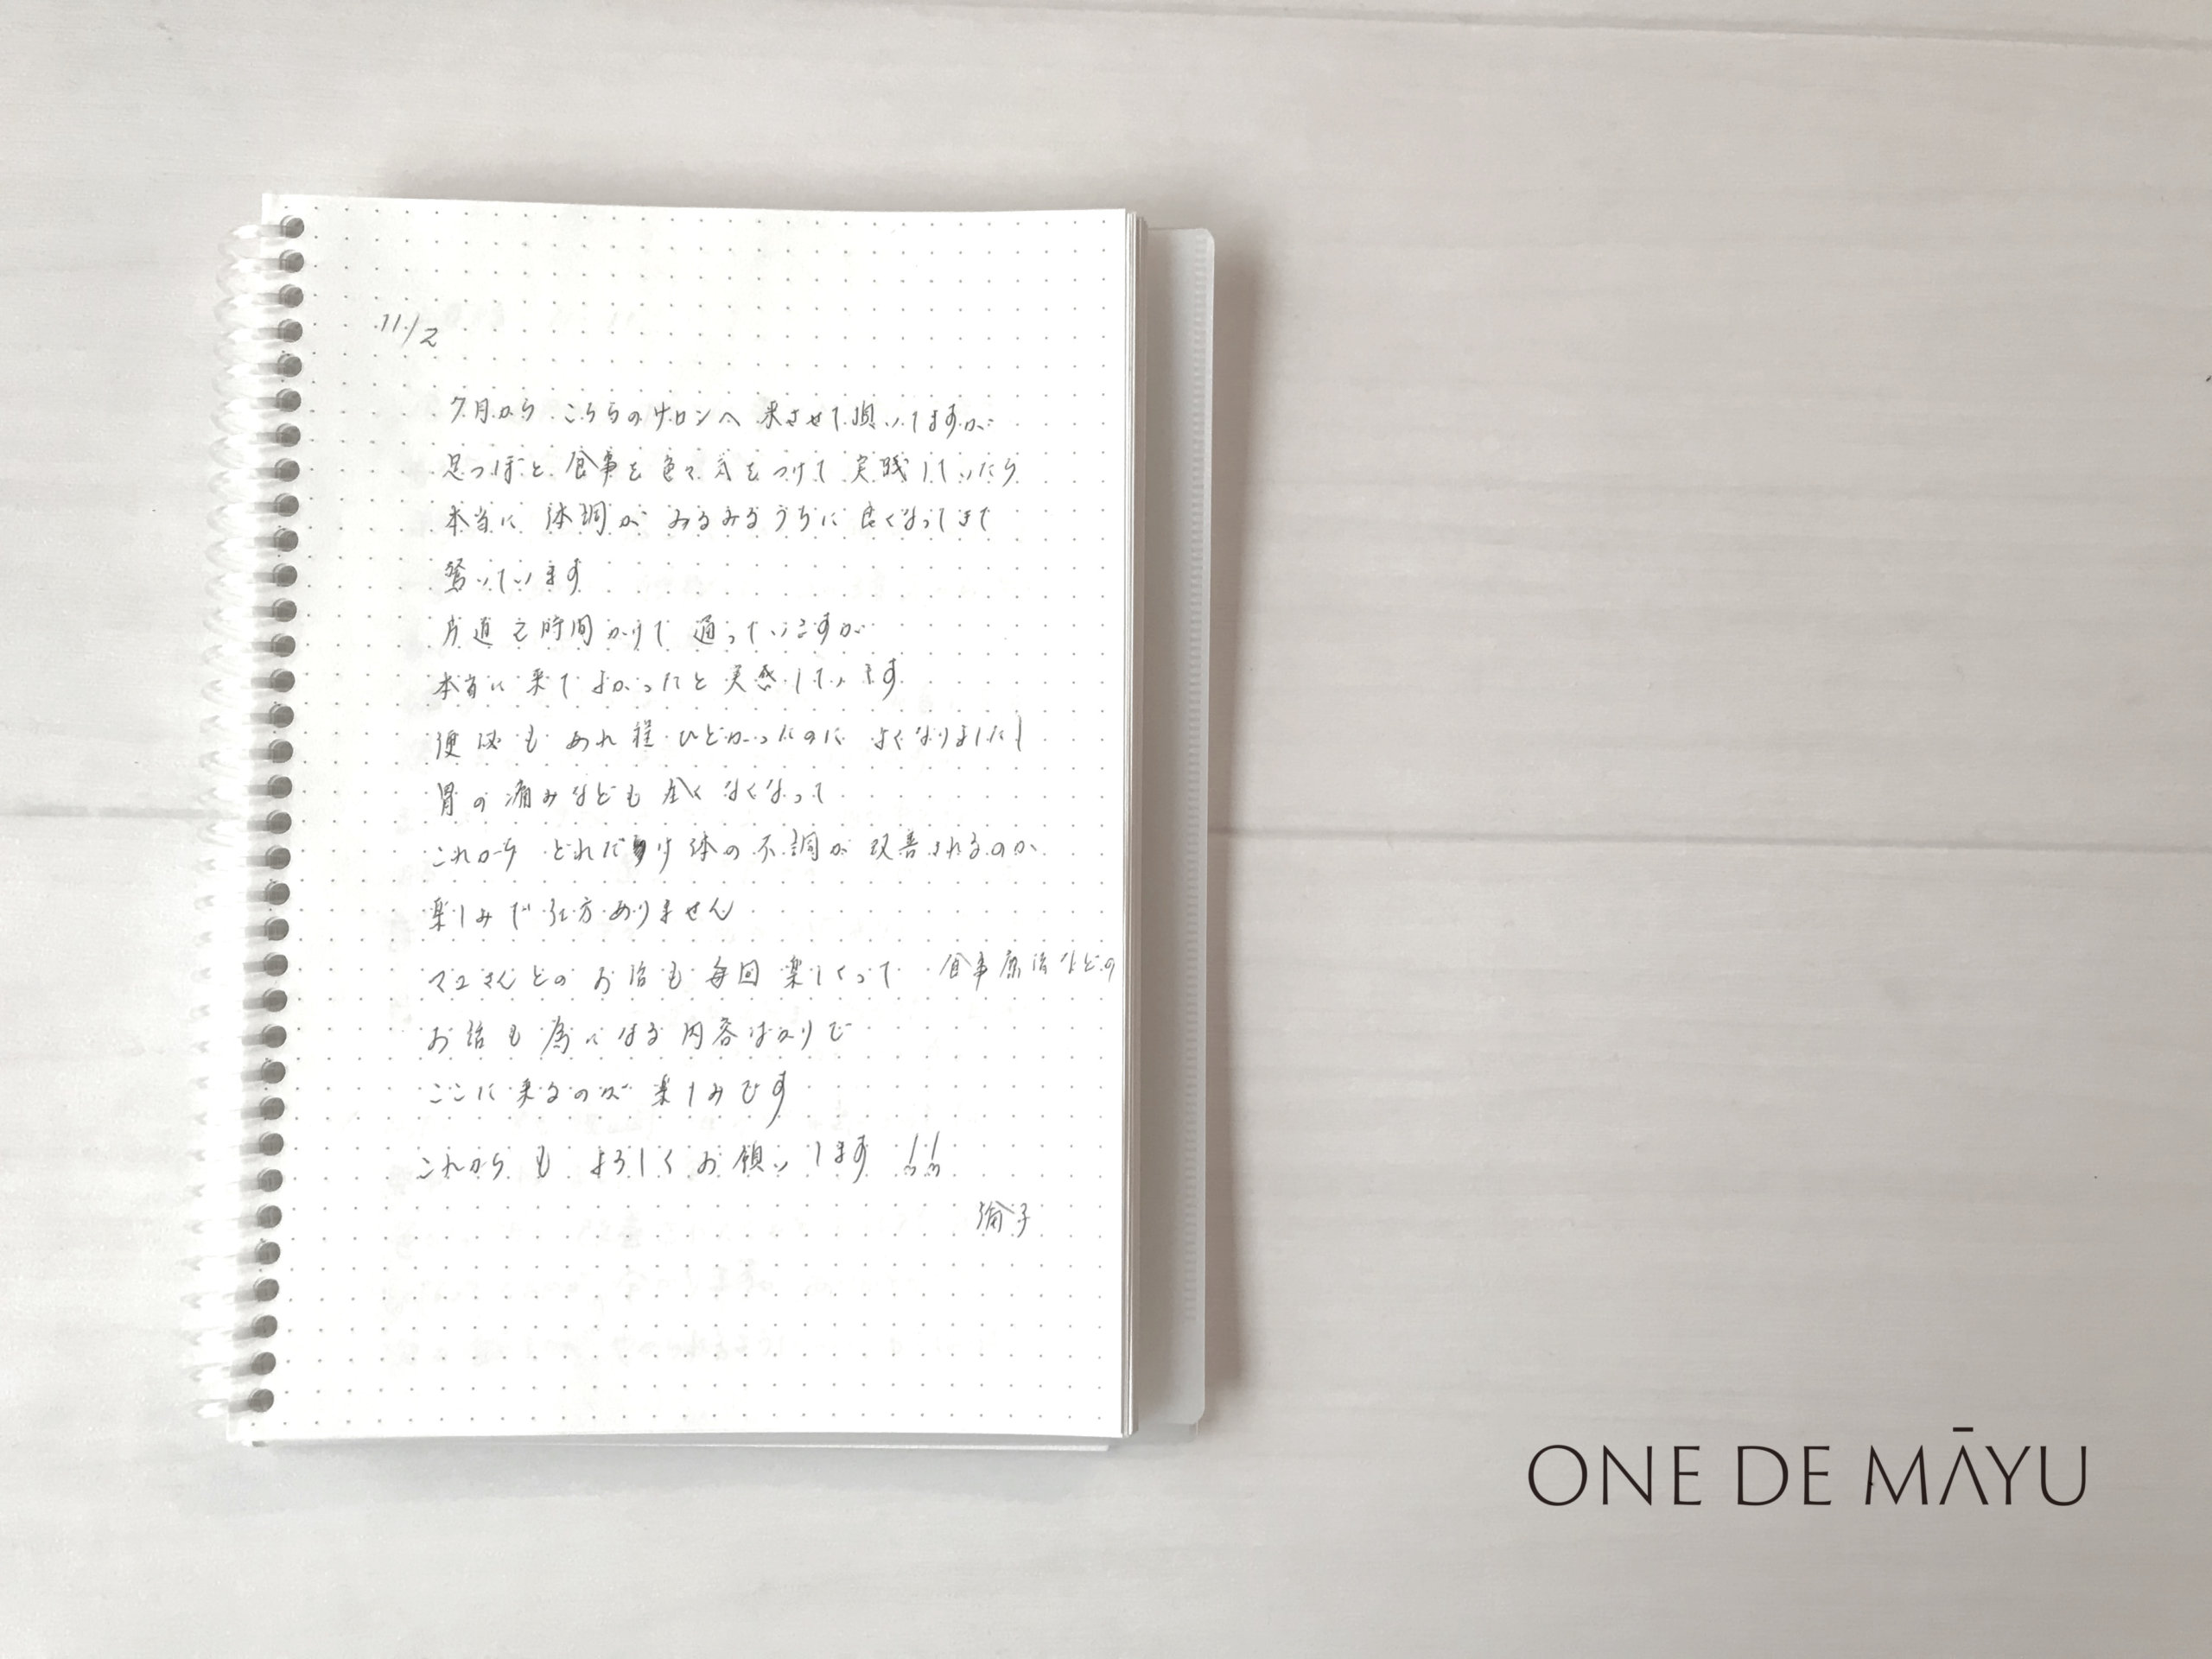 11/2
7月から こちらのサロンへ 来させて頂いてますが
足つぼと 食事を 色々 気をつけて 実践していたら
本当に 体調が みるみるうちに 良くなってきて
驚いています
片道 2時間かけて 通っていますが
本当に 来て よかったと 実感しています
便秘も あれ程 ひどかったのに よくなりましたし
胃の痛みなども 全く なくなって
これから どれだけ 体の不調が 改善されるのか
楽しみで 仕方ありません
マユさんとの お話も 毎回 楽しくって 食事療法などの
お話も 為になる 内容ばかりで
ここに 来るのが 楽しみです
これからも よろしくお願いします !!
倫子
ONE DE MĀYU